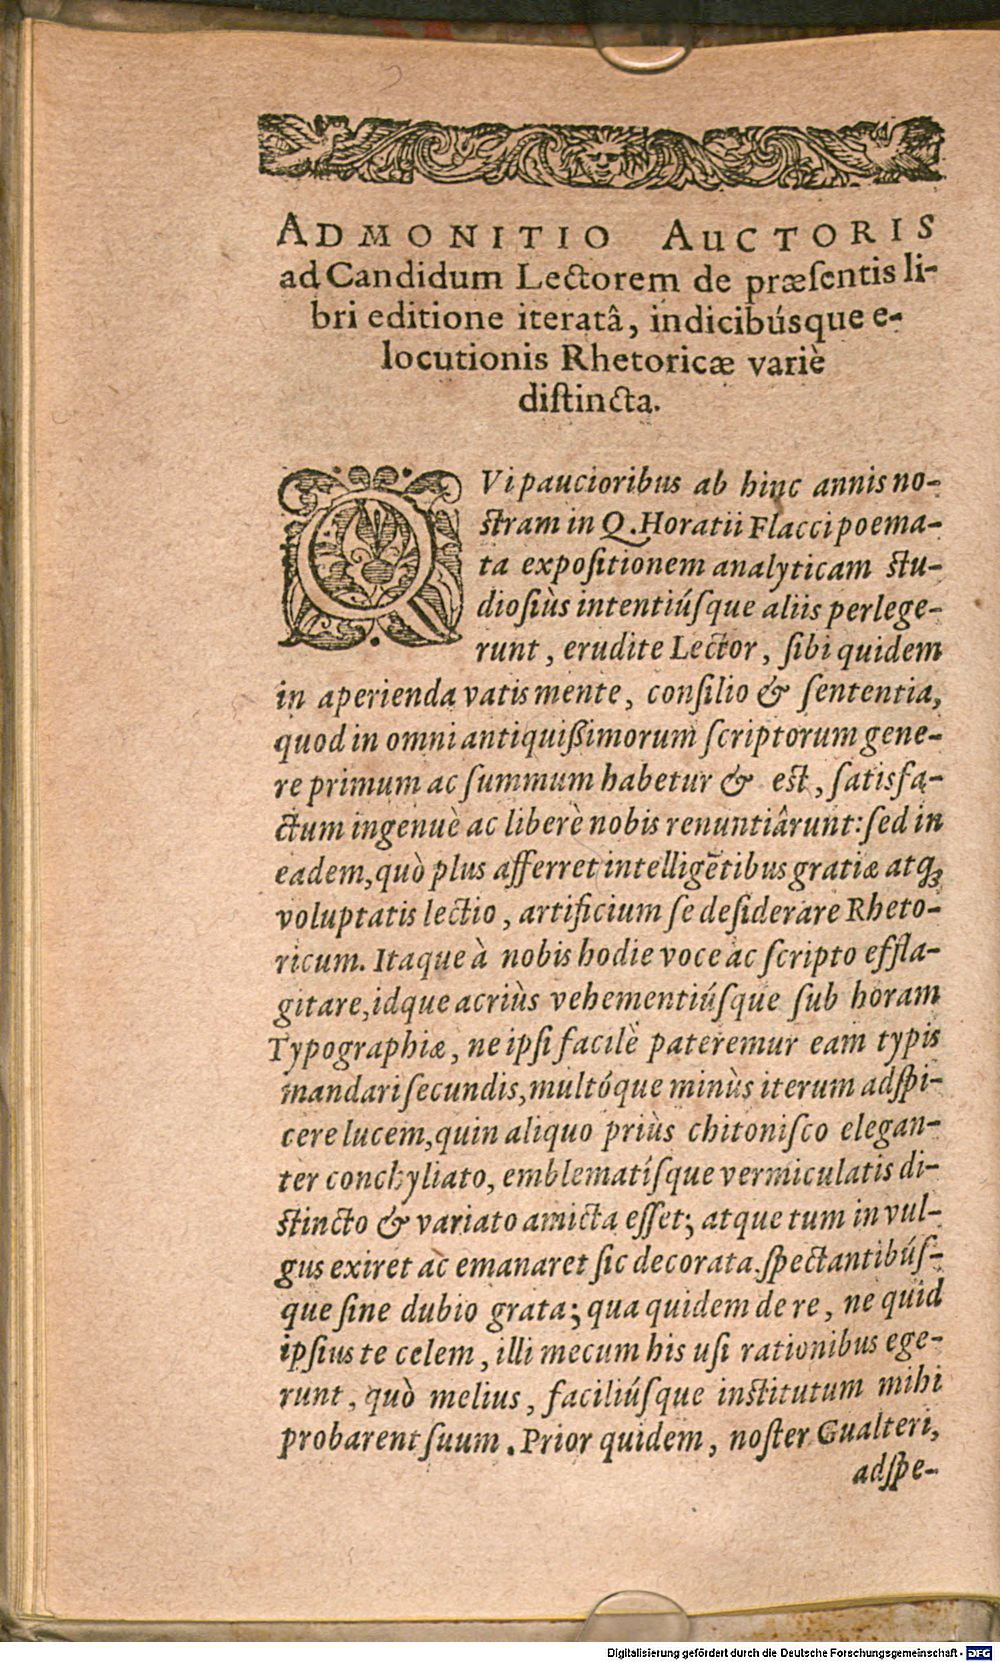 ADMONITIO AuCTORIS
ad Candidum Lectorem de præſentis li-
bri editione iteratâ, indicibúsque e-
locutionis Rhetoricæ variè
diſtincta.
QVi paucioribus ab hinc annis no-
ſtram in Q. Horatii Flacci poema-
ta expoſitionem analyticam ſtu-
dioſiùs intentiúſque aliis perlege-
runt, erudite Lector, ſibi quidem
in aperienda vatis mente, conſilio & ſententia,
quod in omni antiquißimorum ſcriptorum gene-
re primum ac ſummum habetur & eſt, ſatisfa-
ctum ingenuè ac liberè nobis renuntiârunt: ſed in
eadem, quò plus afferret intelligētibus gratiæ atq₃
voluptatis lectio, artificium ſe deſiderare Rheto-
ricum. Itaque à nobis hodie voce ac ſcripto effla-
gitare, idque acriùs vehementiúſque ſub horam
Typographiæ, ne ipſi facilè pateremur eam typis
mandari ſecundis, multóque minùs iterum adſpi-
cere lucem, quin aliquo priùs chitoniſco elegan-
ter conchyliato, emblematíſque vermiculatis di-
ſtincto & variato amicta eſſet; atque tum in vul-
gus exiret ac emanaret ſic decorata. ſpectantibúſ-
que ſine dubio grata; qua quidem de re, ne quid
ipſius te celem, illi mecum his uſi rationibus ege-
runt, quò melius, faciliúſque inſtitutum mihi
probarent ſuum. Prior quidem, noſter Gualteri,
adſpe-
Digitalisierung gefördert durch die Deutsche Forschungsgemeinschaft - DFG